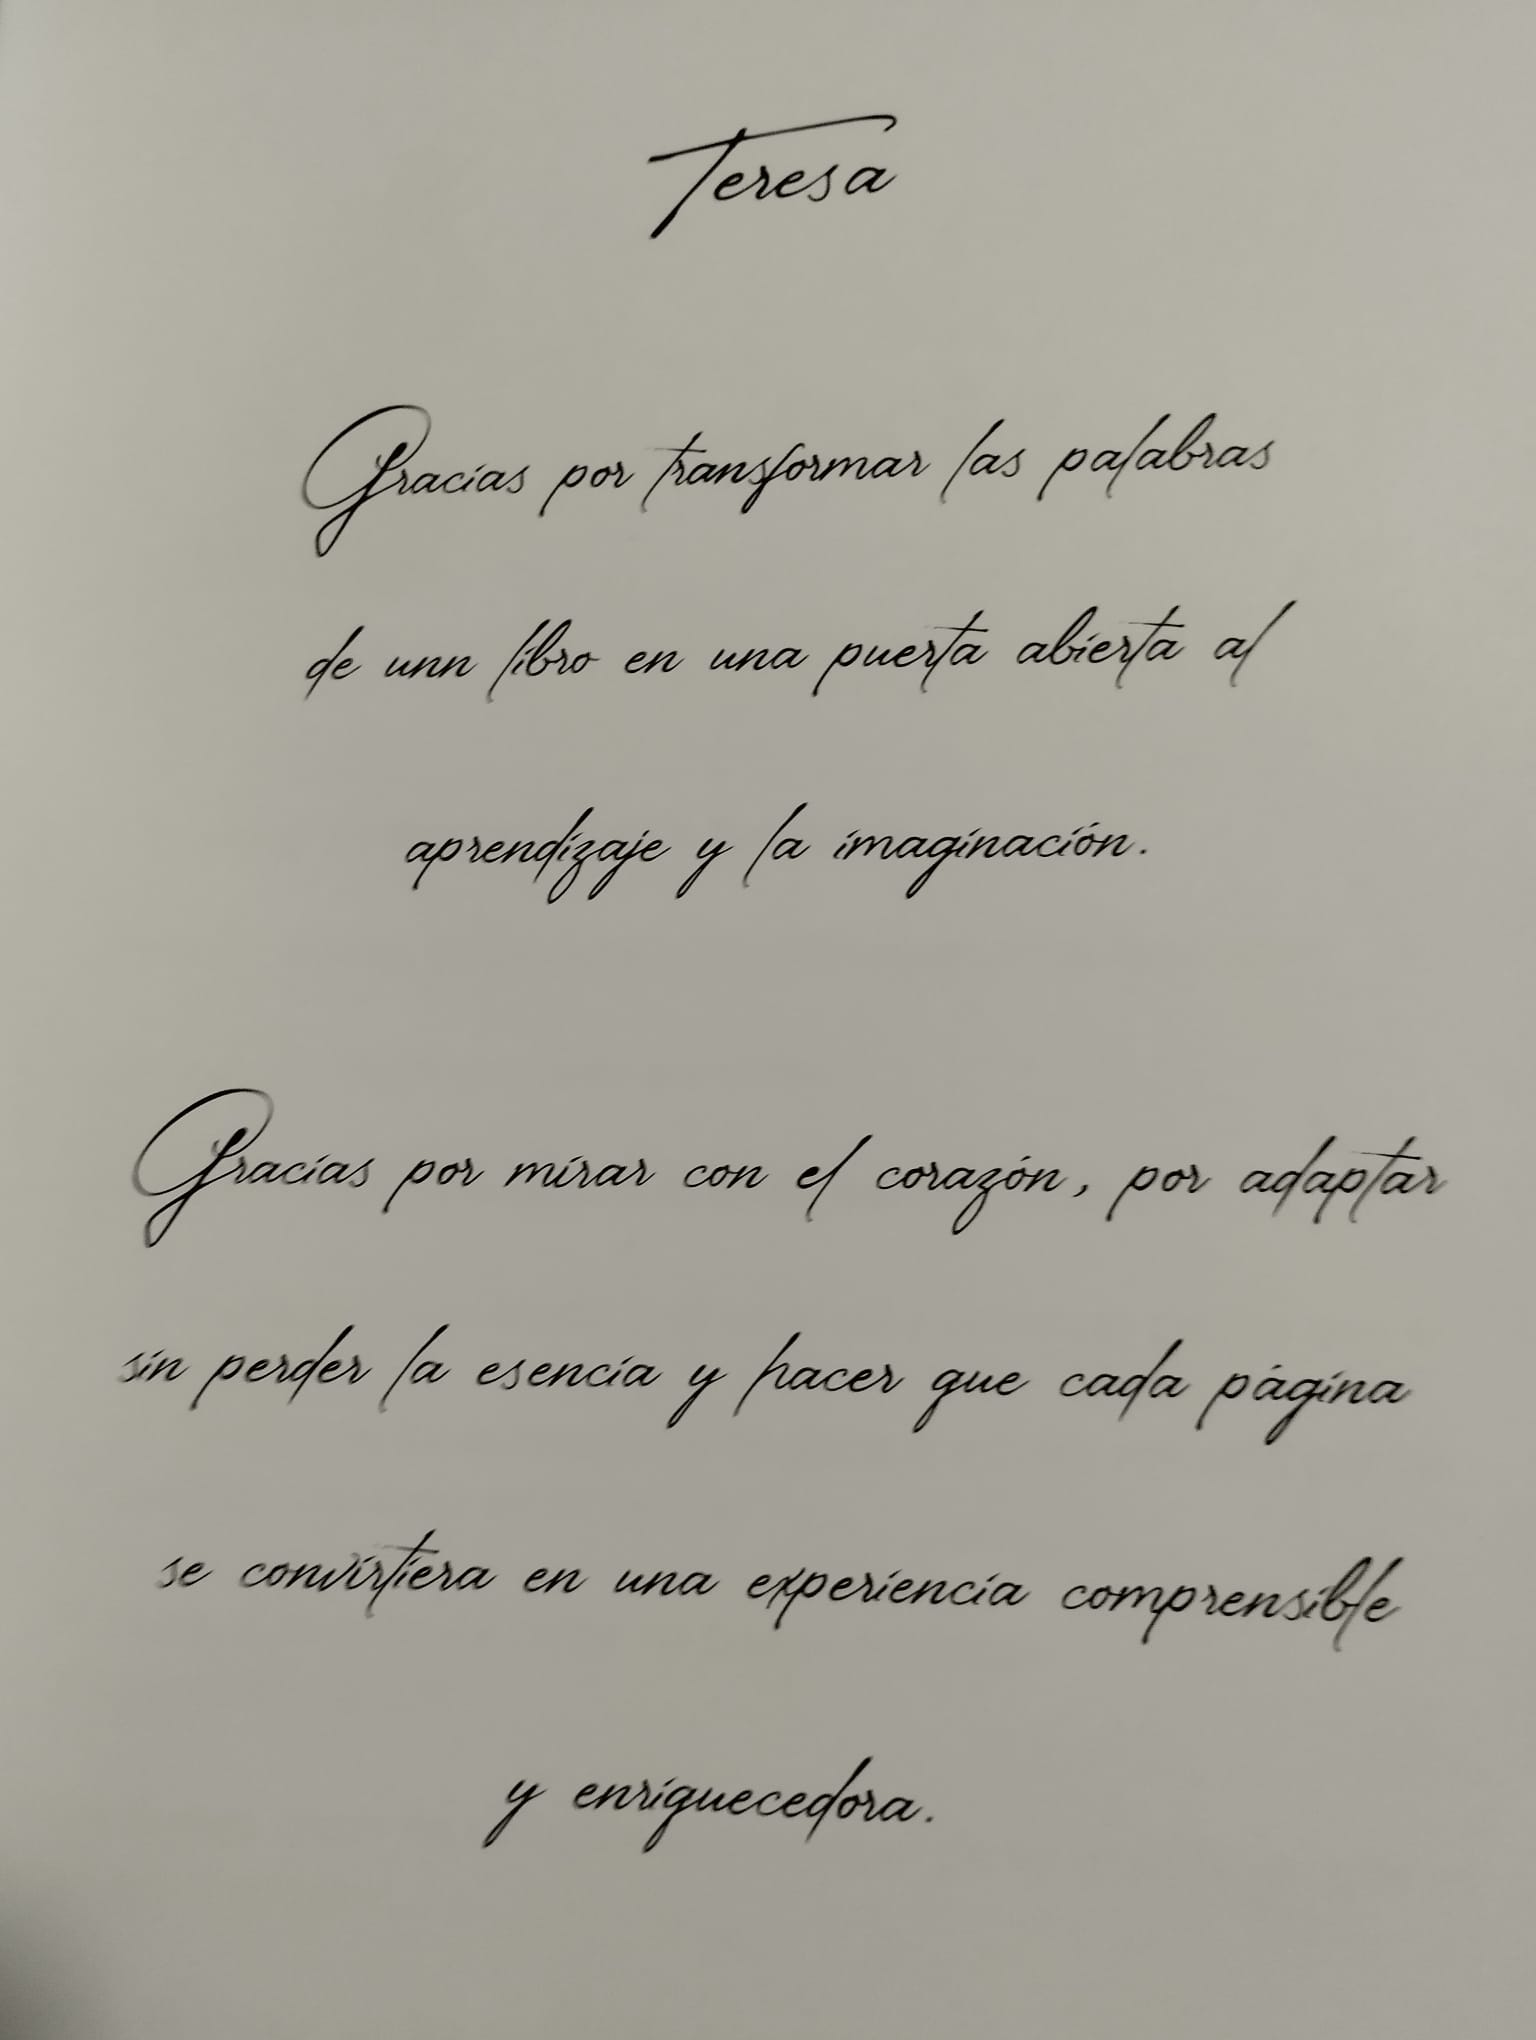 Teresa
Gracias por transformar las palabras
de unn libro en una puerta abierta al
aprendizaje y la imaginación.
Gracias por mirar con el corazón, por adaptar
sin perder la esencia y hacer que cada página
se convirtiera en una experiencia comprensible
y enriquecedora.